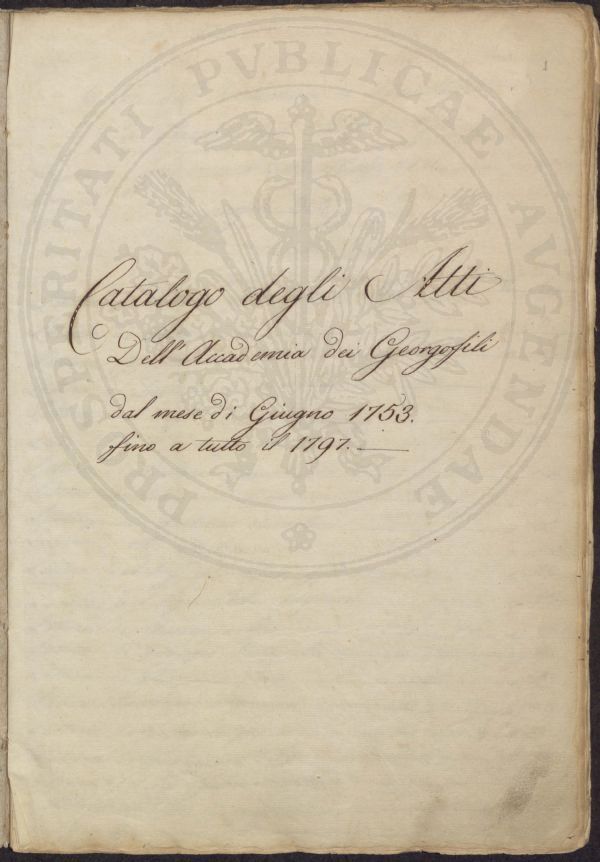 1
PROSPERITATI PVBLICAE AVGENDAE
Catalogo degli Atti
Dell'Accademia dei Georgofili
dal mese di Giugno 1753.
fino a tutto il 1797.